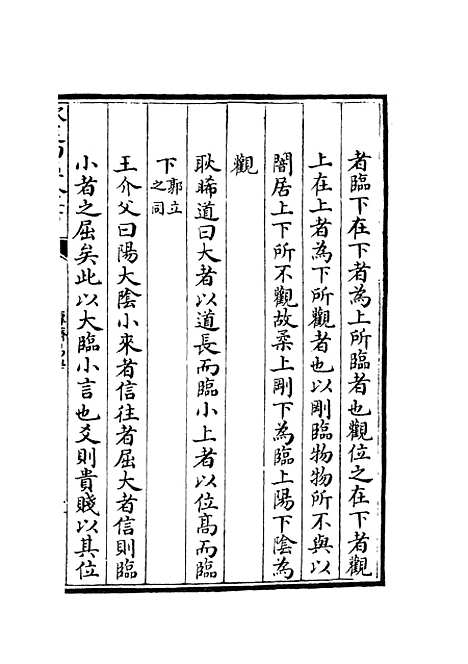 者臨下在下者為上所臨者也觀位之在下者觀
上在上者為下所觀者也以剛臨物物所不與以
闇居上下所不觀故柔上剛下為臨上陽下陰為
觀
耿睎道曰大者以道長而臨小上者以位髙而臨
下郭立
之同
王介父曰陽大陰小來者信往者屈大者信則臨
小者之屈矣此以大臨小言也爻則貴賤以其位